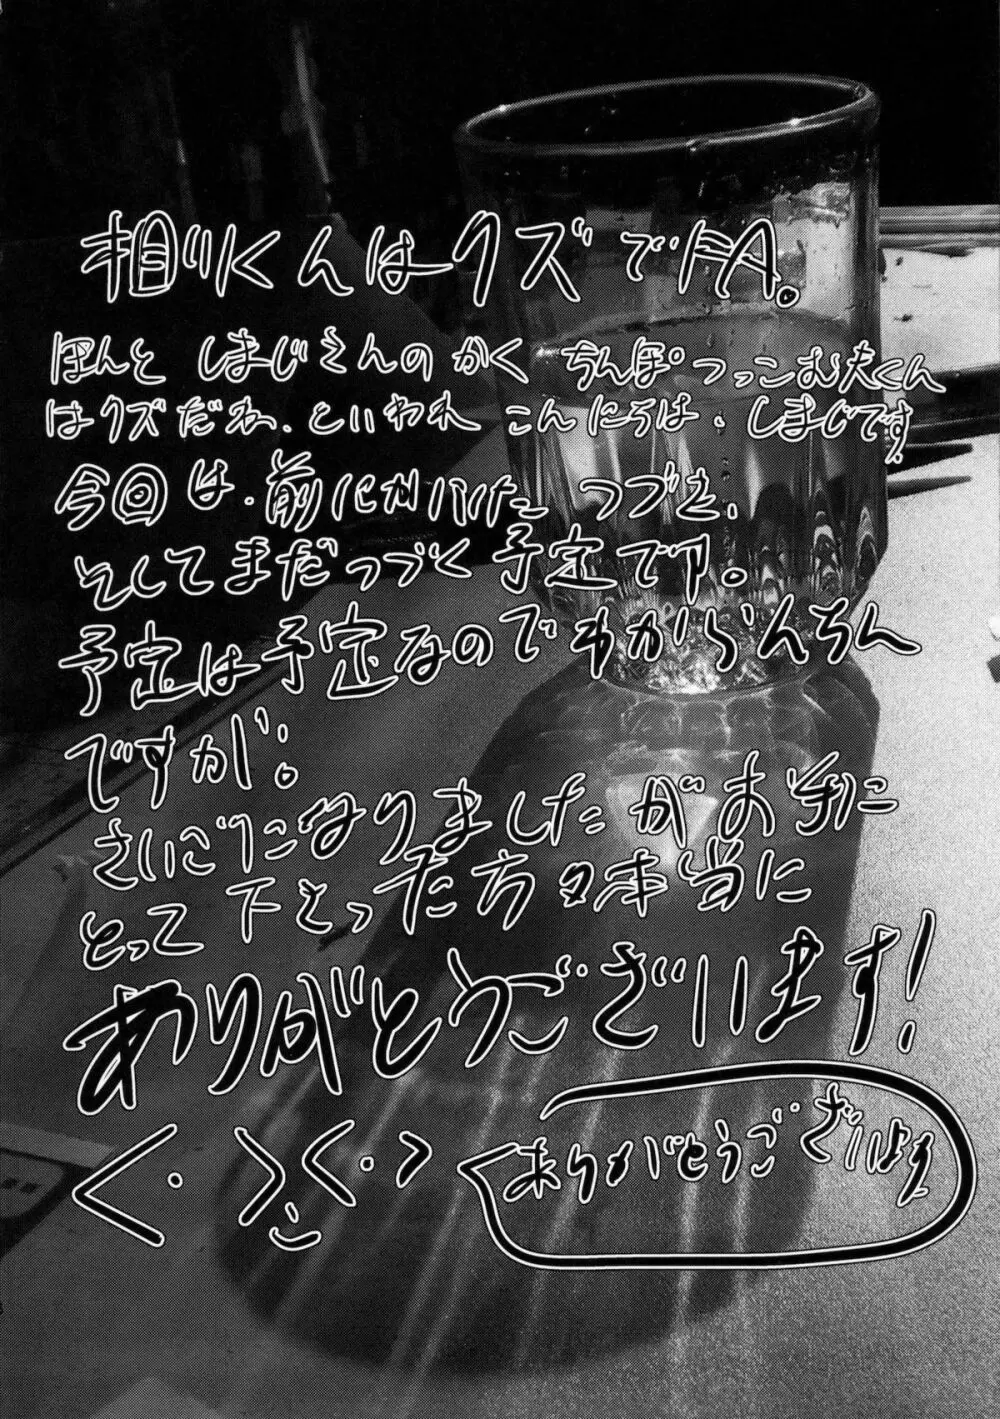 相川くんはクズでFA。
ほんと しまじさんのかく ちんぽつっこむ夫くん
はクズだね、といわれ こんにちは、しまじです。
今回は、前にかいた つづき、
そしてまだつづく予定です。
予定は予定なのでわからんちん
ですが。
さいごになりましたがお手に
とって下さった方々本当に
ありがとうございます!
ありがとうござい